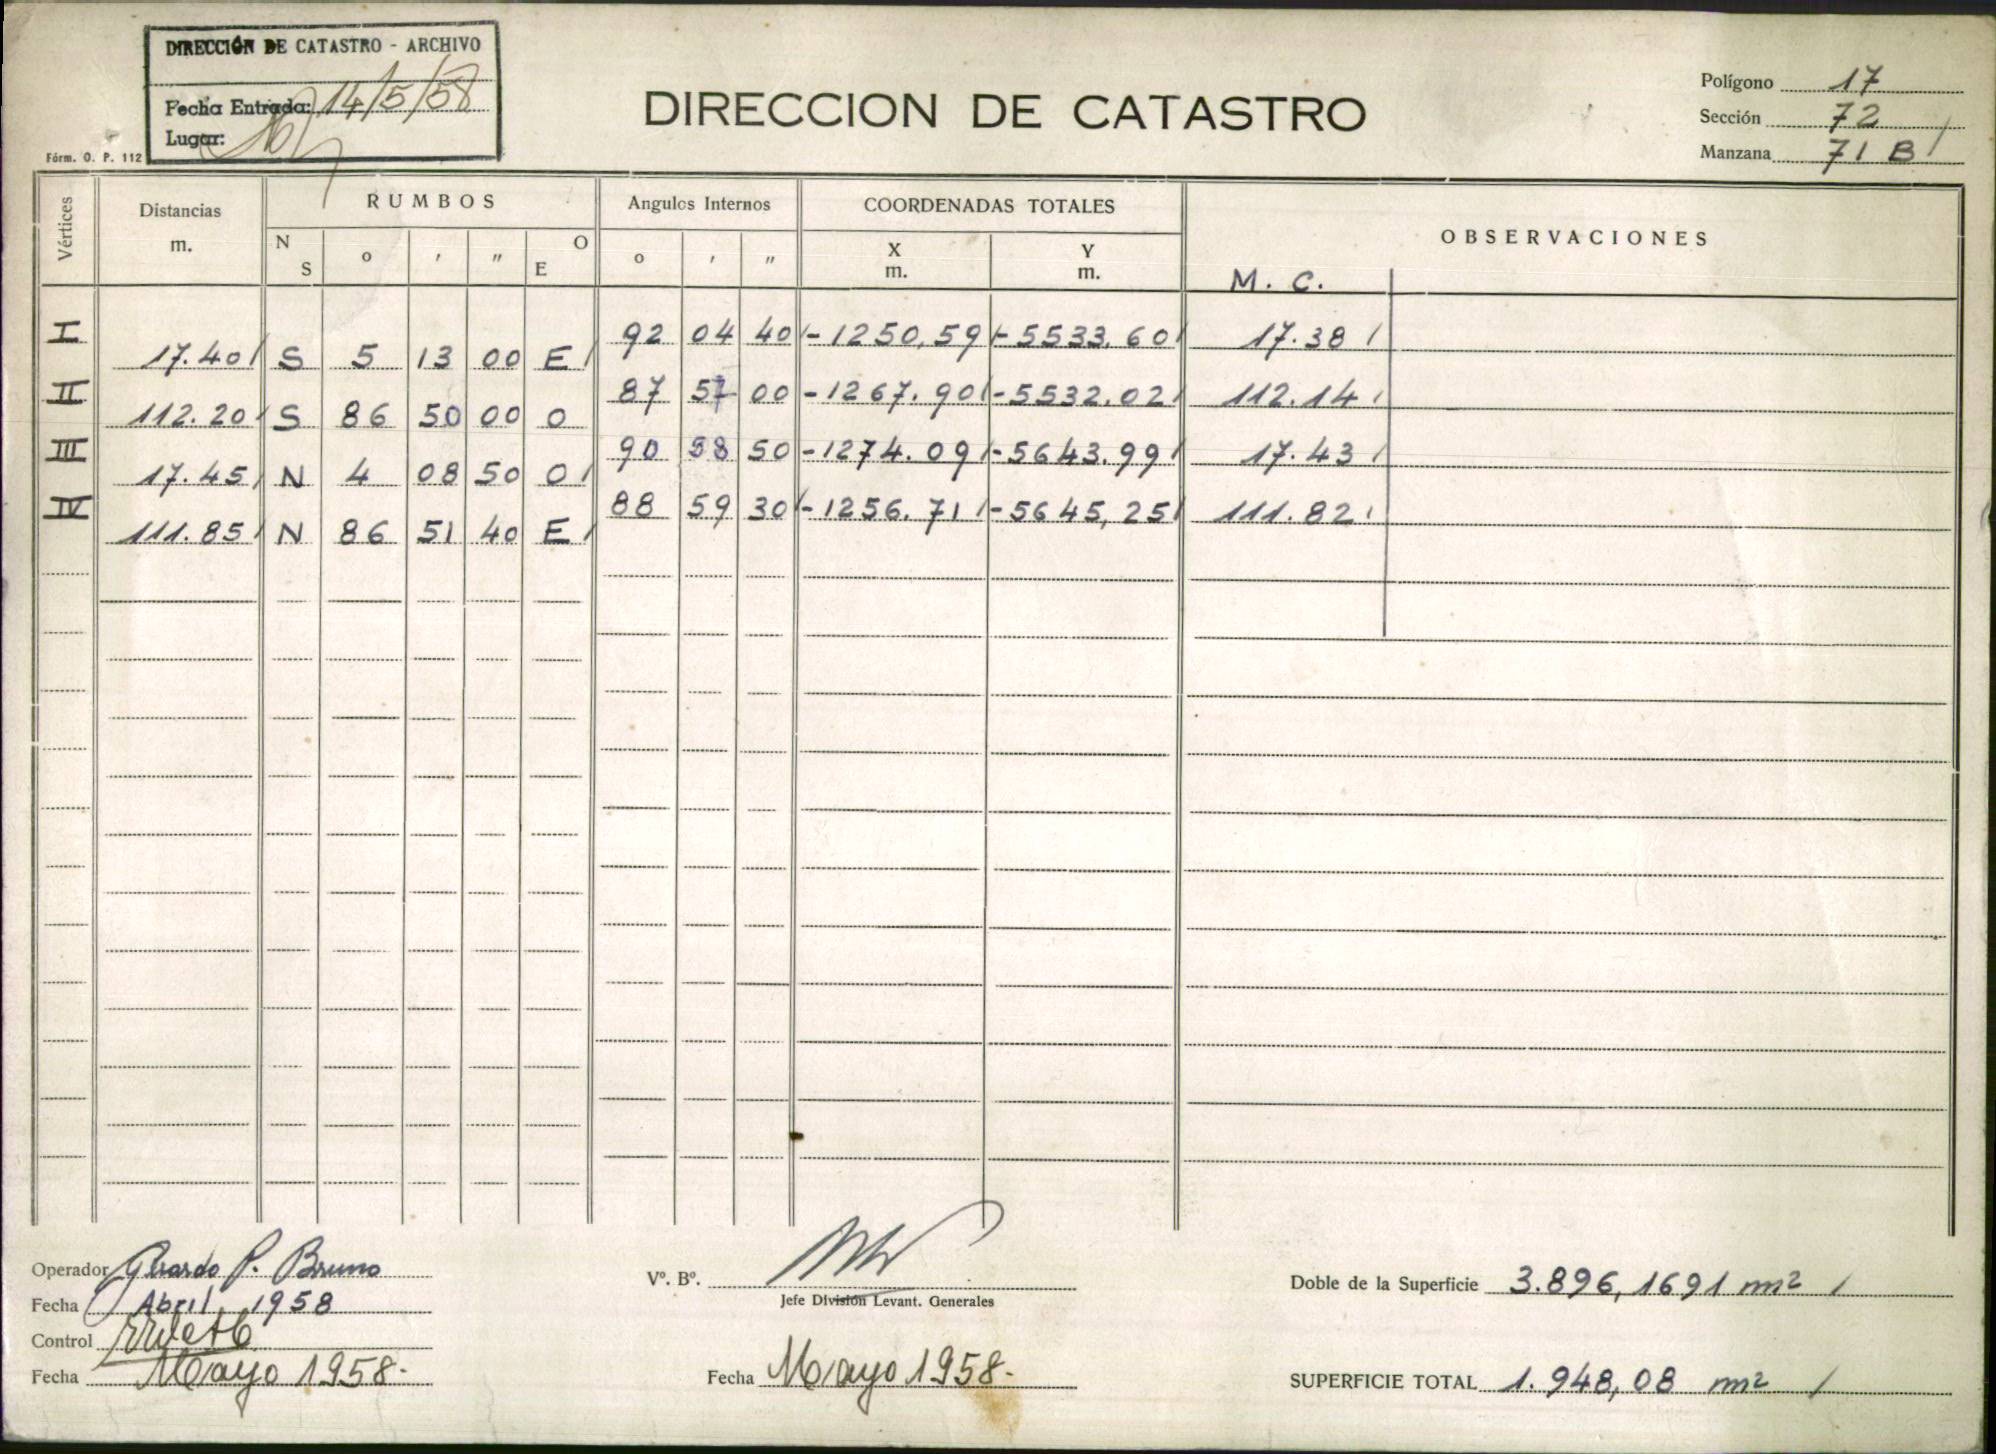 DIRECCIÓN DE CATASTRO - ARCHIVO
Fecha Entrada: 14/5/58
Lugar:
Fórm. O. P. 112
DIRECCION DE CATASTRO
Polígono 17
Sección 72
Manzana 71 B /
Vértices Distancias m. RUMBOS Angulos Internos COORDENADAS TOTALES OBSERVACIONES
N S o ' " O E o ' " X m. Y m. M. C.
I 92 04 40 -1250,59 -5533,60 17.38
17.40 S 5 13 00 E
II 87 57 00 -1267.90 -5532.02 112.14
112.20 S 86 50 00 O
III 90 58 50 -1274.09 -5643.99 17.43
17.45 N 4 08 50 O
IV 88 59 30 -1256.71 -5645,25 111.82
111.85 N 86 51 40 E
Operador Gerardo P. Bruno
Fecha Abril 1958
Control
Fecha Mayo 1958.-
Vº. Bº.
Jefe División Levant. Generales
Fecha Mayo 1958.-
Doble de la Superficie 3.896,1691 m2 /
SUPERFICIE TOTAL 1.948,08 m2 /